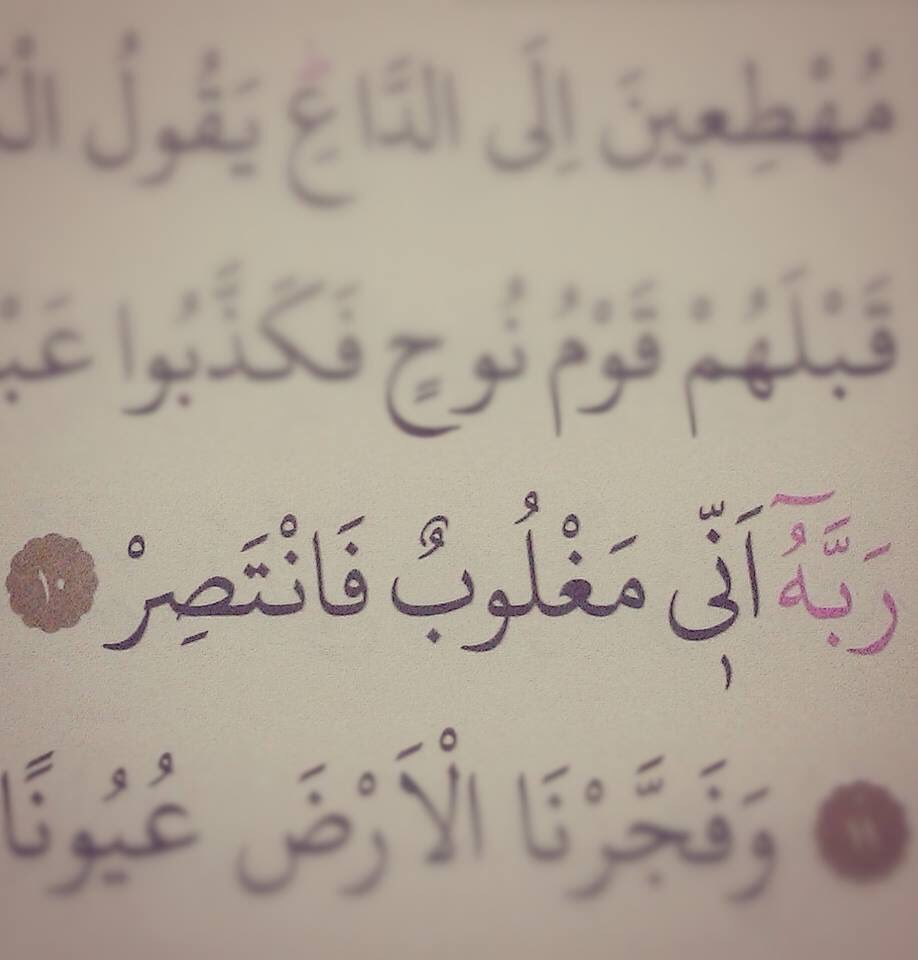 مُهْطِعِينَ اِلَى الدَّاعِ يَقُولُ
قَبْلَهُمْ قَوْمُ نُوحٍ فَكَذَّبُوا
رَبَّهُٓ اَنّٖى مَغْلُوبٌ فَانْتَصِرْ ١٠
١١ وَفَجَّرْنَا الْاَرْضَ عُيُونًا